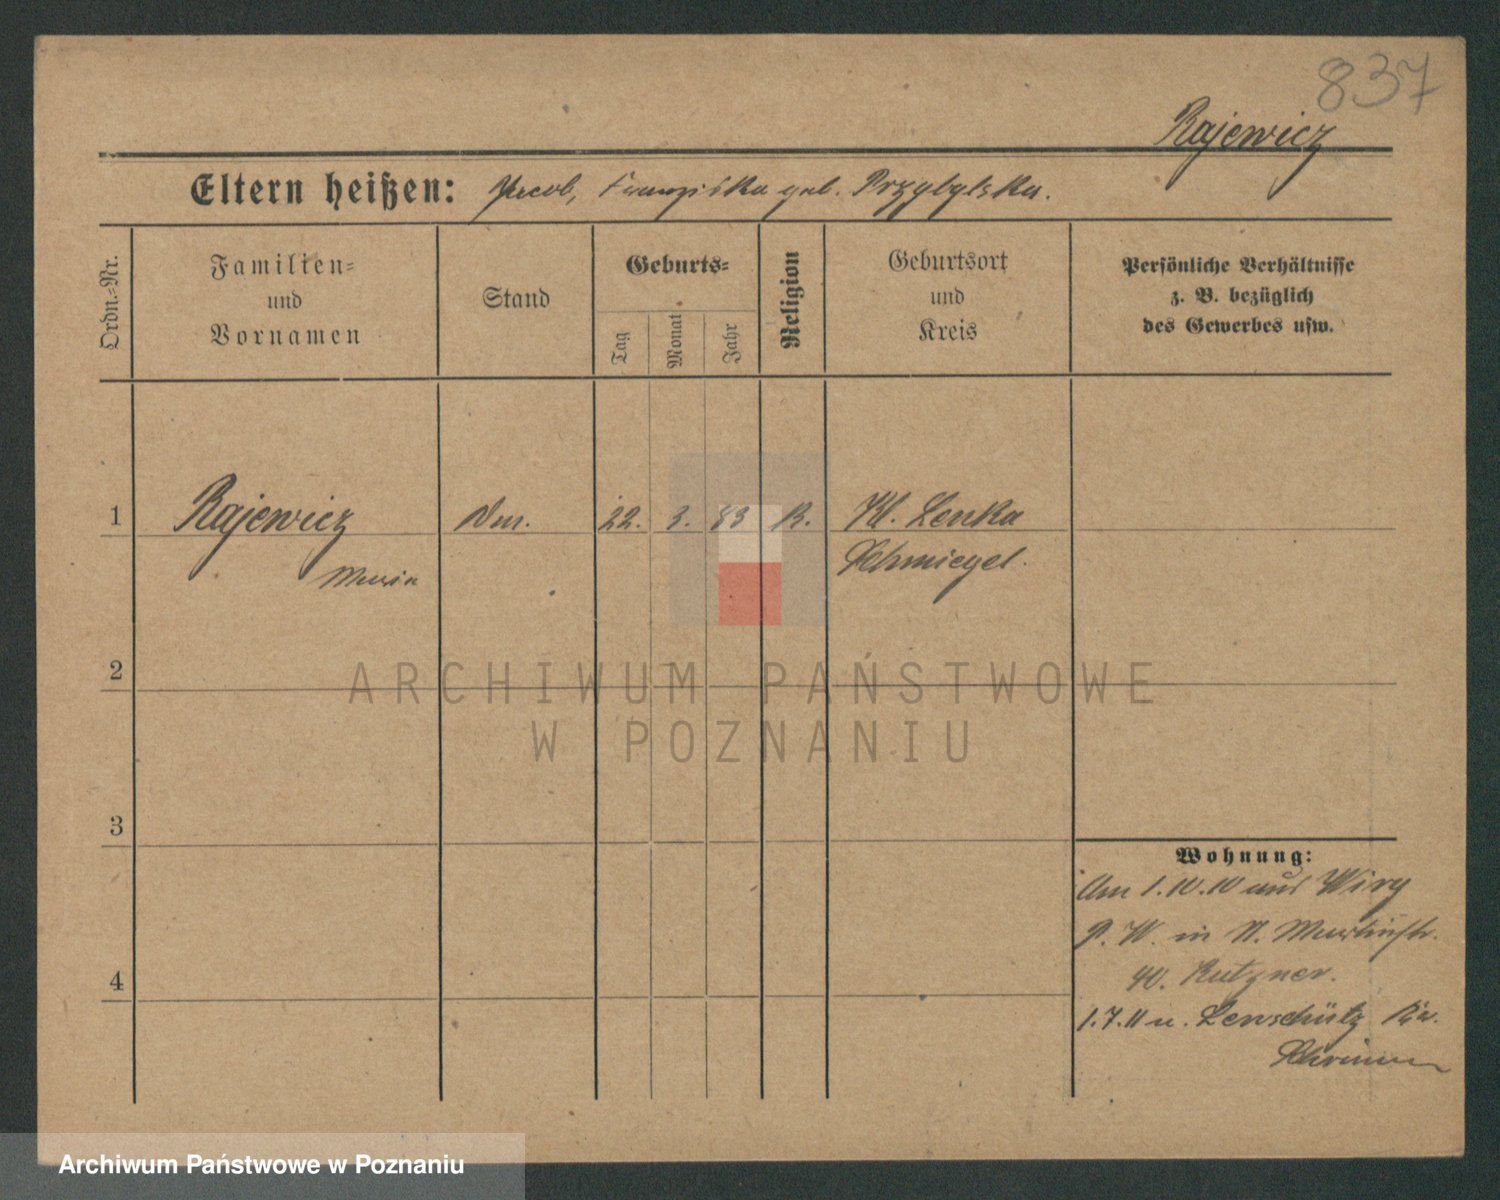 837
Rajewicz
Eltern heißen: Jacob, Franziska geb. Przybylska.
Ordn.-Nr.
Familien-
und
Vornamen
Stand
Geburts-
Tag
Monat
Jahr
Religion
Geburtsort
und
Kreis
Persönliche Verhältnisse
z. B. bezüglich
des Gewerbes usw.
1 Rajewicz 22. 3. 83 K. Kl. Lenka
Maria Schmiegel.
2
ARCHIWUM PAŃSTWOWE
W POZNANIU
3
Wohnung:
Am 1.10.10 aus Wiry
P. W. in St. Martinstr.
4
40.
1.7.11 n. Lenschütz Kr.
Schrimm
Archiwum Państwowe w Poznaniu